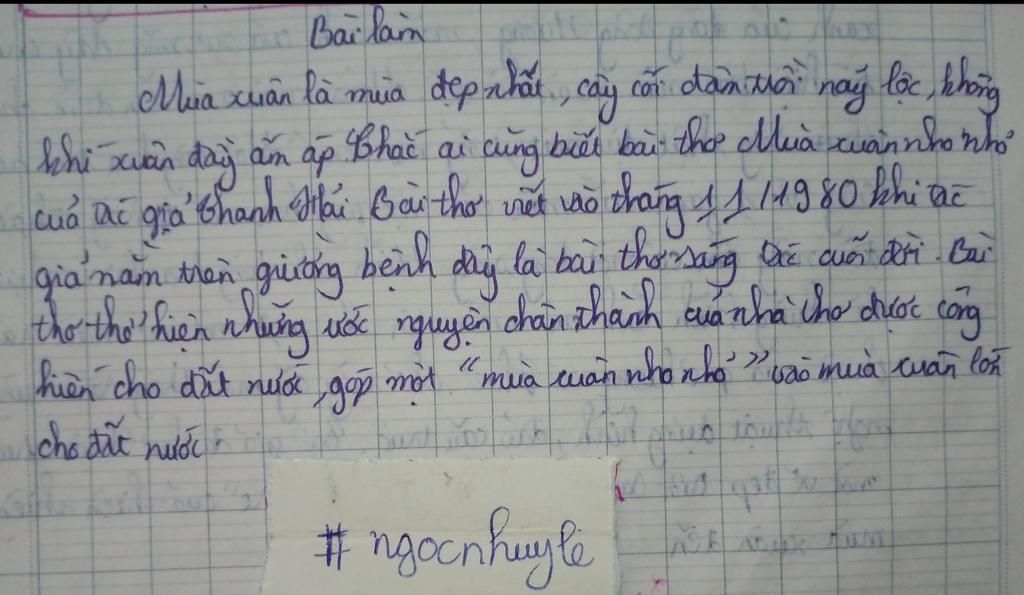 Bài làm
Mùa xuân là mùa đẹp nhất, cây cối đâm trồi nảy lộc, không
khí xuân đầy ấm áp. Chắc ai cũng biết bài thơ Mùa xuân nho nhỏ
của tác giả Thanh Hải. Bài thơ viết vào tháng 11/1980 khi tác
giả nằm trên giường bệnh đây là bài thơ sáng tác cuối đời. Bài
thơ thể hiện những ước nguyện chân thành của nhà thơ được cống
hiến cho đất nước, góp một “mùa xuân nho nhỏ” vào mùa xuân lớn
cho đất nước
# ngocnhuyle